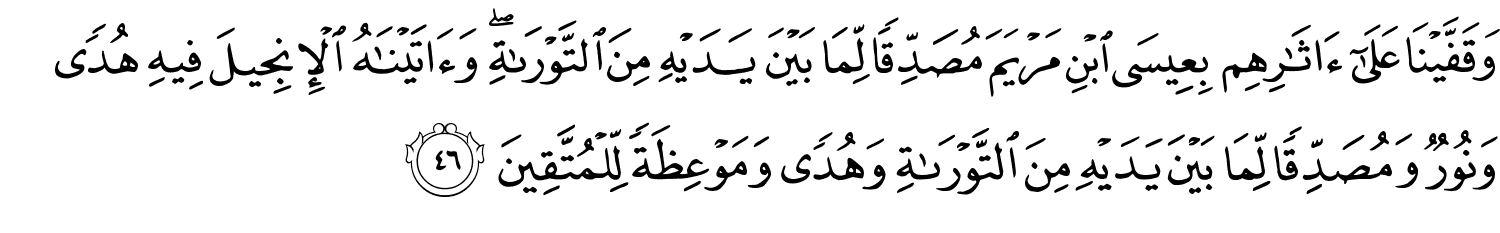 وَقَفَّيْنَا عَلَىٰٓ ءَاثَـٰرِهِم بِعِيسَى ٱبْنِ مَرْيَمَ مُصَدِّقًا لِّمَا بَيْنَ يَدَيْهِ مِنَ ٱلتَّوْرَىٰةِ ۖ وَءَاتَيْنَـٰهُ ٱلْإِنجِيلَ فِيهِ هُدًى
وَنُورٌ وَمُصَدِّقًا لِّمَا بَيْنَ يَدَيْهِ مِنَ ٱلتَّوْرَىٰةِ وَهُدًى وَمَوْعِظَةً لِّلْمُتَّقِينَ ٤٦